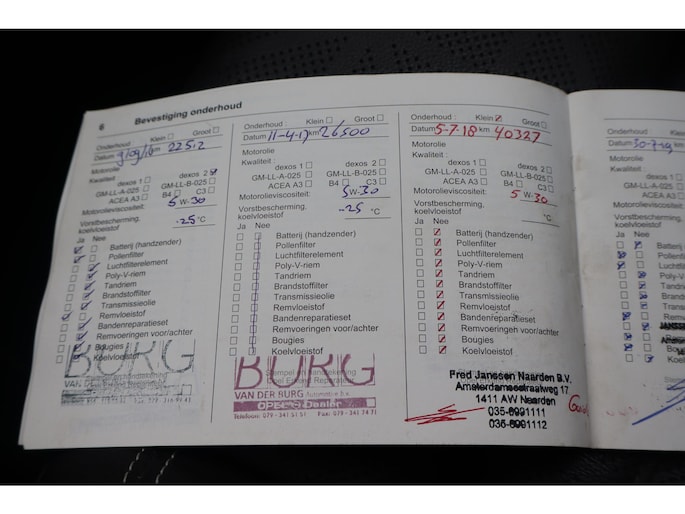 6 Bevestiging onderhoud
Onderhoud: Klein Groot
Datum 9/09/16 km 22512
Motorolie
Kwaliteit: dexos 1 dexos 2
GM-LL-A-025 GM-LL-B-025
ACEA A3 B4 C3
Motorolieviscositeit: 5 W-30
Vorstbescherming.
koelvloeistof -25 °C
Ja Nee
Batterij (handzender)
Pollenfilter
Luchtfilterelement
Poly-V-riem
Tandriem
Brandstoffilter
Transmissieolie
Remvloeistof
Bandenreparatieset
Remvoeringen voor/achter
Bougies
Koelvloeistof
BURG
VAN DER BURG
Onderhoud: Klein Groot
Datum 11-4-17 km 26500
Motorolie
Kwaliteit: dexos 1 dexos 2
GM-LL-A-025 GM-LL-B-025
ACEA A3 B4 C3
Motorolieviscositeit: 5W-30
Vorstbescherming.
koelvloeistof -25 °C
Ja Nee
Batterij (handzender)
Pollenfilter
Luchtfilterelement
Poly-V-riem
Tandriem
Brandstoffilter
Transmissieolie
Remvloeistof
Bandenreparatieset
Remvoeringen voor/achter
Bougies
Koelvloeistof
BURG
Stempel en handtekening
Opel Erkend Reparateur
VAN DER BURG Automotive b.v.
OPEL's Dealer
Telefoon: 079-341 51 51 Fax: 079-341 74 71
Onderhoud: Klein Groot
Datum 5-7-18 km 40327
Motorolie
Kwaliteit: dexos 1 dexos 2
GM-LL-A-025 GM-LL-B-025
ACEA A3 B4 C3
Motorolieviscositeit: 5 W-30
Vorstbescherming.
koelvloeistof °C
Ja Nee
Batterij (handzender)
Pollenfilter
Luchtfilterelement
Poly-V-riem
Tandriem
Brandstoffilter
Transmissieolie
Remvloeistof
Bandenreparatieset
Remvoeringen voor/achter
Bougies
Koelvloeistof
Fred Janssen Naarden B.V.
Amsterdamsestraatweg 17
1411 AW Naarden
035-6991111
035-6991112
Onderhoud:
Datum 30-7-19 km
Motorolie
Kwaliteit:
GM-LL-A-
ACEA
Motorolieviscosi
Vorstbescherming
koelvloeistof
Ja Nee
Batt
Polle
Luch
Poly
Tan
Bran
Tran
Rem
JANSSE
Koel